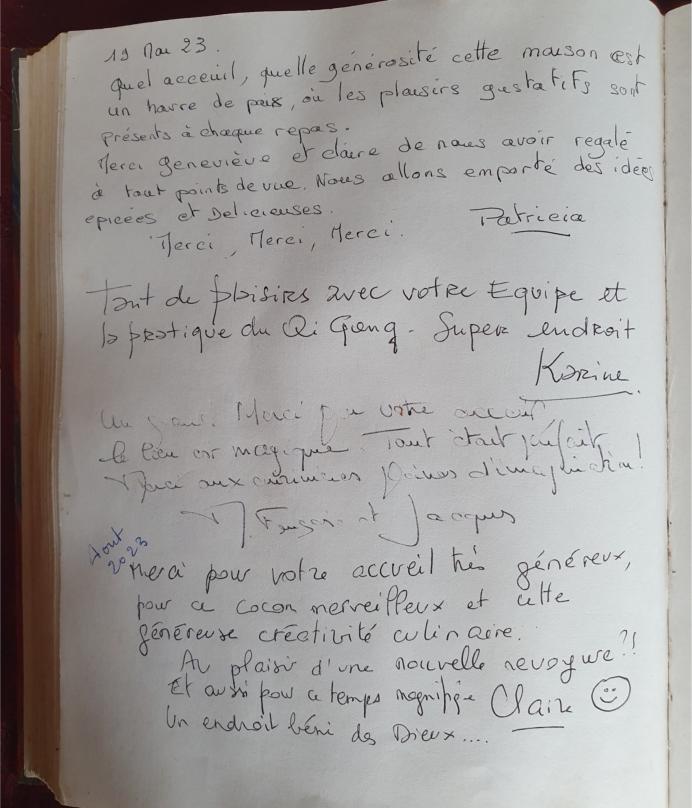 19 Mai 23.
Quel acceuil, quelle générosité cette maison est
un havre de paix, où les plaisirs gustatifs sont
présents à chaque repas.
Merci geneviève et claire de nous avoir regalé
à tout points de vue. Nous allons emporté des idées
epicées et Delicieuses.
Merci, Merci, Merci.
Patricia
Tant de plaisirs avec votre Equipe et
la pratique du Qi Gong. Super endroit
Karine
Un grand Merci pour votre accueil
le lieu est magique. Tout était parfait
Merci aux cuisinières pleines d'imagination!
et Jacques
Aout
2023
Merci pour votre accueil très généreux,
pour ce cocon merveilleux et cette
généreuse créativité culinaire.
Au plaisir d'une nouvelle revoyure?!
Et aussi pour ce temps magnifique Claire
Un endroit béni des Dieux....